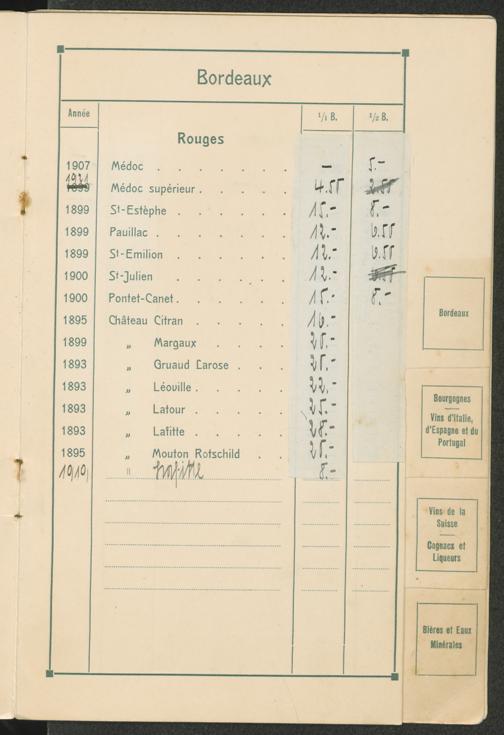 Bordeaux
Année 1/1 B. 1/2 B.
Rouges
1907 Médoc . . . . . . . – 5.-
1931 Médoc supérieur . . . . . 4.50
1899 St-Estèphe . . . . . . 15.- 8.-
1899 Pauillac . . . . . . . 12.- 6.50
1899 St-Emilion . . . . . . 12.- 6.50
1900 St-Julien . . . . . . 12.-
1900 Pontet-Canet . . . . . . 15.- 8.-
1895 Château Citran . . . . . 16.-
1899 „ Margaux . . . . 25.-
1893 „ Gruaud Larose . . . 25.-
1893 „ Léoville . . . . . 22.-
1893 „ Latour . . . . . 25.-
1893 „ Lafitte . . . . . 28.-
1895 „ Mouton Rotschild . . 25.-
1919 " 8.-
Bordeaux
Bourgognes
Vins d'Italie,
d'Espagne et du
Portugal
Vins de la
Suisse
Cognacs et
Liqueurs
Bières et Eaux
Minérales